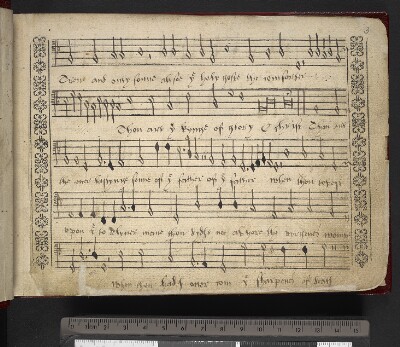 and only sonne also yͤ holy goste the comforter
Thou art yͤ kynge of glory O christ Thou art
the everlastinge sonne of yͤ father of yͤ father when thou tokest
upon yͤ to delyver man thou dydst not abhorre the virgines wombe
When thou hadst over com yͤ sharpenes of death